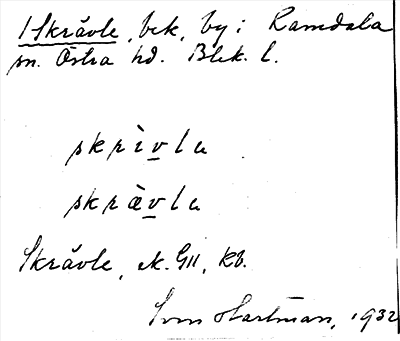 1 Skrävle, bek, by i Ramdala
sn. Östra hd. Blek. l.
skrìvla
skrævla
Skrävle, ek. GII, kb.
Sven Hartman, 1932